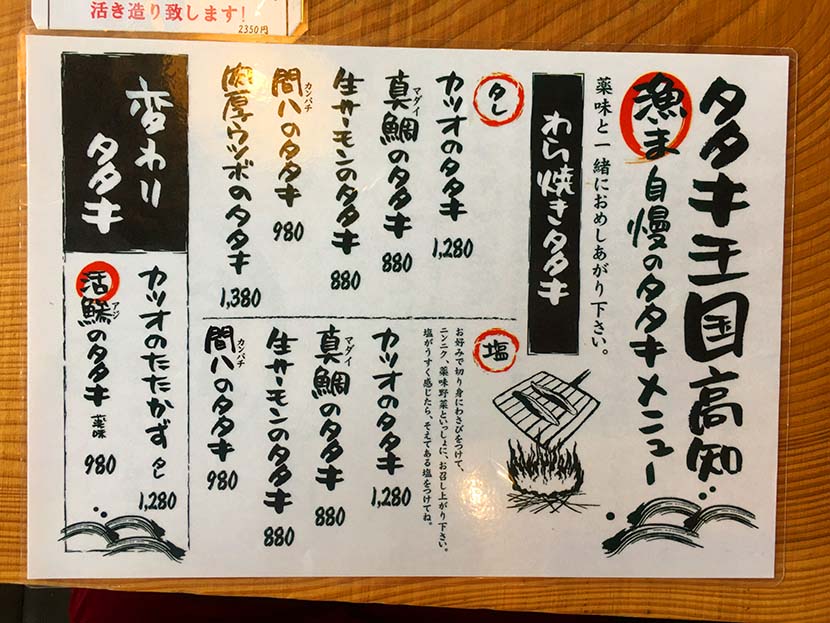 活き造り致します!
2350円
タタキ王国高知
漁ま自慢のタタキメニュー
薬味と一緒におめしあがり下さい。
わら焼きタタキ
タレ
カツオのタタキ 1,280
真鯛のタタキ 880
マダイ
生サーモンのタタキ 880
間八のタタキ 980
カンパチ
肉厚ウツボのタタキ 1,380
塩
お好みで切り身にわさびをつけて、
ニンニク、薬味野菜といっしょに、お召し上がり下さい。
塩がうすく感じたら、そえてある塩をつけてね。
カツオのタタキ 1,280
真鯛のタタキ 880
マダイ
生サーモンのタタキ 880
間八のタタキ 980
カンパチ
変わり
タタキ
カツオのたたかず タレ 1,280
活鯵のタタキ 薬味 980
アジ